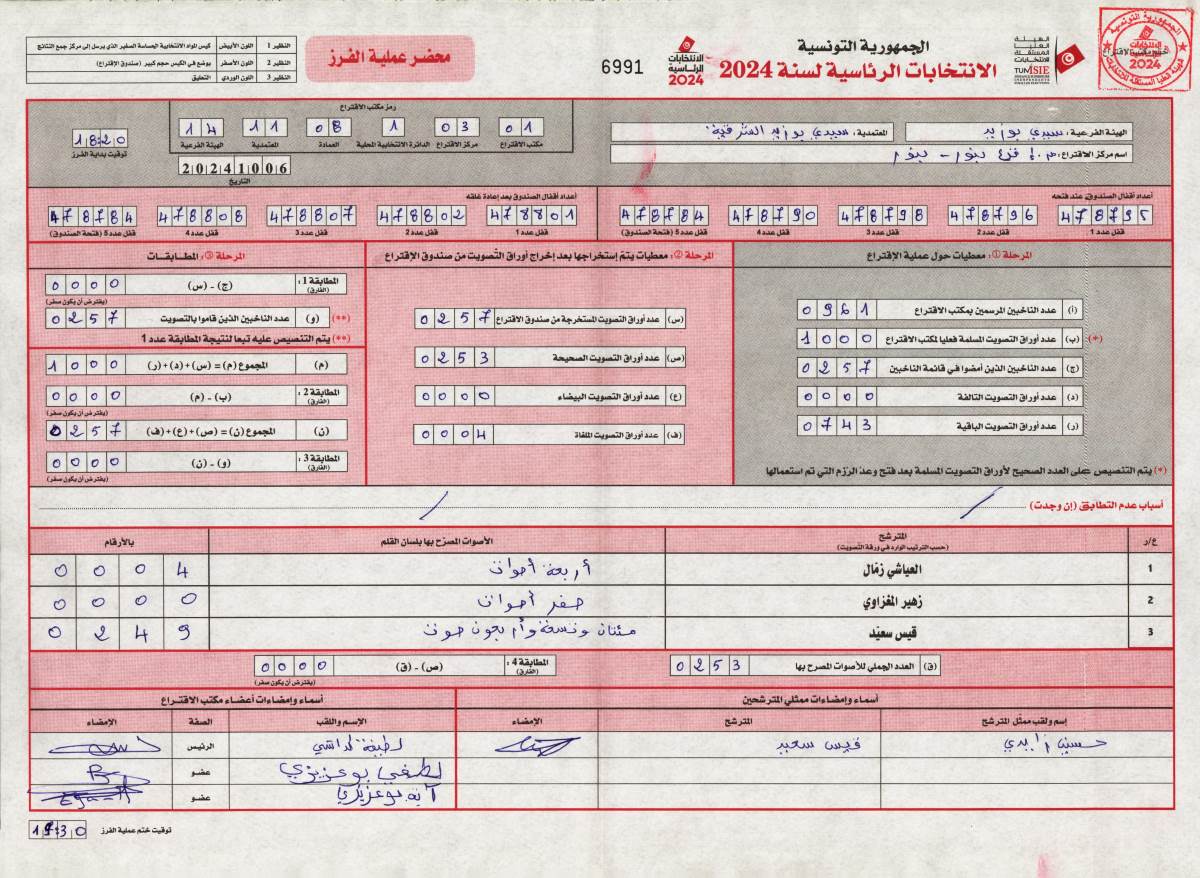 الجمهورية التونسية
الانتخابات الرئاسية لسنة 2024
الهيئة
العليا
المستقلة
للانتخابات
TUNISIE
الانتخابات
الرئاسية
2024
6991
محضر عملية الفرز
النظير 1 اللون الأبيض كيس المواد الانتخابية الحساسة الصغير الذي يرسل إلى مركز جمع النتائج
النظير 2 اللون الأصفر يوضع في الكيس حجم كبير (صندوق الإقتراع)
النظير 3 اللون الوردي التعليق
الهيئة الفرعية: سيدي بوزيد
المعتمدية: سيدي بوزيد الشرقية
اسم مركز الاقتراع:
رمز مكتب الاقتراع
01 03 1 08 11 14
مكتب الاقتراع مركز الاقتراع الدائرة الانتخابية المحلية العمادة المعتمدية الهيئة الفرعية
18:20
توقيت بداية الفرز
20241006
التاريخ
أعداد أقفال الصندوق عند فتحه
478795 478796 478798 478790 478784
قفل عدد 1 قفل عدد 2 قفل عدد 3 قفل عدد 4 قفل عدد 5 (فتحة الصندوق)
أعداد أقفال الصندوق بعد إعادة غلقه
478801 478802 478807 478808 478784
قفل عدد 1 قفل عدد 2 قفل عدد 3 قفل عدد 4 قفل عدد 5 (فتحة الصندوق)
المرحلة ①: معطيات حول عملية الإقتراع
(أ) عدد الناخبين المرسمين بمكتب الاقتراع 0961
(*) (ب) عدد أوراق التصويت المسلمة فعليا لمكتب الاقتراع 1000
(ج) عدد الناخبين الذين أمضوا في قائمة الناخبين 0257
(د) عدد أوراق التصويت التالفة 0000
(ر) عدد أوراق التصويت الباقية 0743
(*) يتم التنصيص على العدد الصحيح لأوراق التصويت المسلمة بعد فتح وعد الرزم التي تم استعمالها
المرحلة ②: معطيات يتم إستخراجها بعد إخراج أوراق التصويت من صندوق الإقتراع
(س) عدد أوراق التصويت المستخرجة من صندوق الاقتراع 0257
(ص) عدد أوراق التصويت الصحيحة 0253
(ع) عدد أوراق التصويت البيضاء 0000
(ف) عدد أوراق التصويت الملغاة 0004
المرحلة ③: المطابقات
المطابقة 1: (الفارق) (ج) - (س) 0000
(يفترض أن يكون صفر)
(**) (و) عدد الناخبين الذين قاموا بالتصويت 0257
(**) يتم التنصيص عليه تبعا لنتيجة المطابقة عدد 1
(م) المجموع (م) = (س)+(د)+(ر) 1000
المطابقة 2: (الفارق) (ب) - (م) 0000
(يفترض أن يكون صفر)
(ن) المجموع (ن) = (ص)+(ع)+(ف) 0257
المطابقة 3: (الفارق) (و) - (ن) 0000
(يفترض أن يكون صفر)
أسباب عدم التطابق (إن وجدت)
ع/ر المترشح الأصوات المصرح بها بلسان القلم بالأرقام
(حسب الترتيب الوارد في ورقة التصويت)
1 العياشي زمّال أربعة أصوات 0004
2 زهير المغزاوي صفر أصوات 0000
3 قيس سعيّد مئتان وتسعة وأربعون صوت 0249
(ق) العدد الجملي للأصوات المصرح بها 0253
المطابقة 4: (الفارق) (ص) - (ق) 0000
(يفترض أن يكون صفر)
أسماء وإمضاءات ممثلي المترشحين
إسم ولقب ممثل المترشح المترشح الإمضاء
حسين زايدي قيس سعيد
أسماء وإمضاءات أعضاء مكتب الاقتراع
الإسم واللقب الصفة الإمضاء
لطيفة الرئيس
لطفي بوعزيزي عضو
آية بوعزيزي عضو
توقيت ختم عملية الفرز